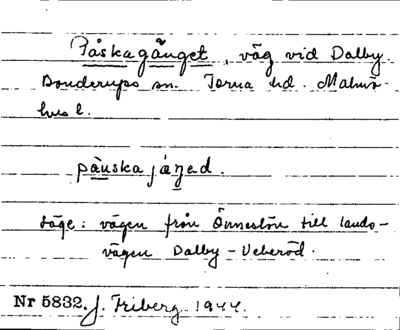 Påskagånget, väg vid Dalby.
Bonderups sn. Torna hd. Malmö-
hus l.
påuskajáŋəd.
Läge: vägen från Önneslöv till lands-
vägen Dalby - Veberöd.
Nr 5832. J. Friberg 1944.